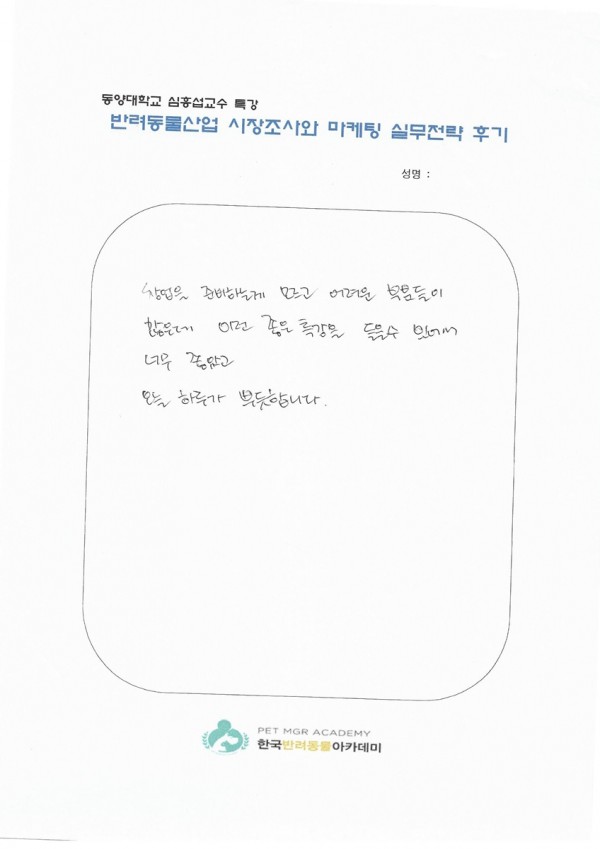 동양대학교 심홍섭교수 특강
반려동물산업 시장조사와 마케팅 실무전략 후기
성명 :
창업을 준비하는게 모르고 어려운 부분들이
많은데 이런 좋은 특강을 들을수 있어서
너무 좋았고
오늘 하루가 뿌듯합니다.
PET MGR ACADEMY
한국반려동물아카데미